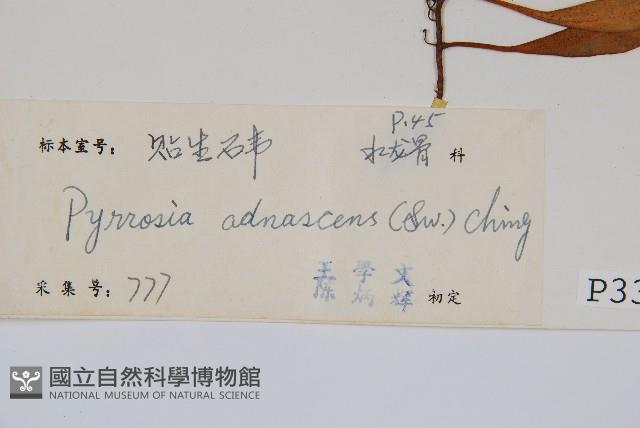 P.45
标本室号: 贴生石韦 水龙骨 科
Pyrrosia adnascens (Sw.) Ching
采集号: 777
學文
炳輝 初定
P33
國立自然科學博物館
NATIONAL MUSEUM OF NATURAL SCIENCE